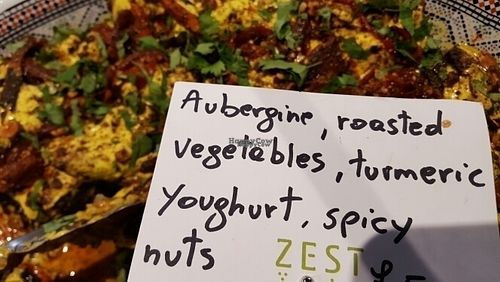 Aubergine, roasted
vegetables, turmeric
Youghurt, spicy
nuts
ZEST